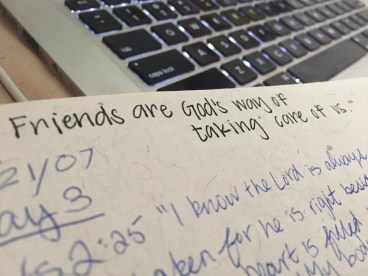 Friends are God's way of
taking care of us."
21/07
ay 3
s 2:25 "I know the Lord is always
aken for he is right besi
heart is filled
y body